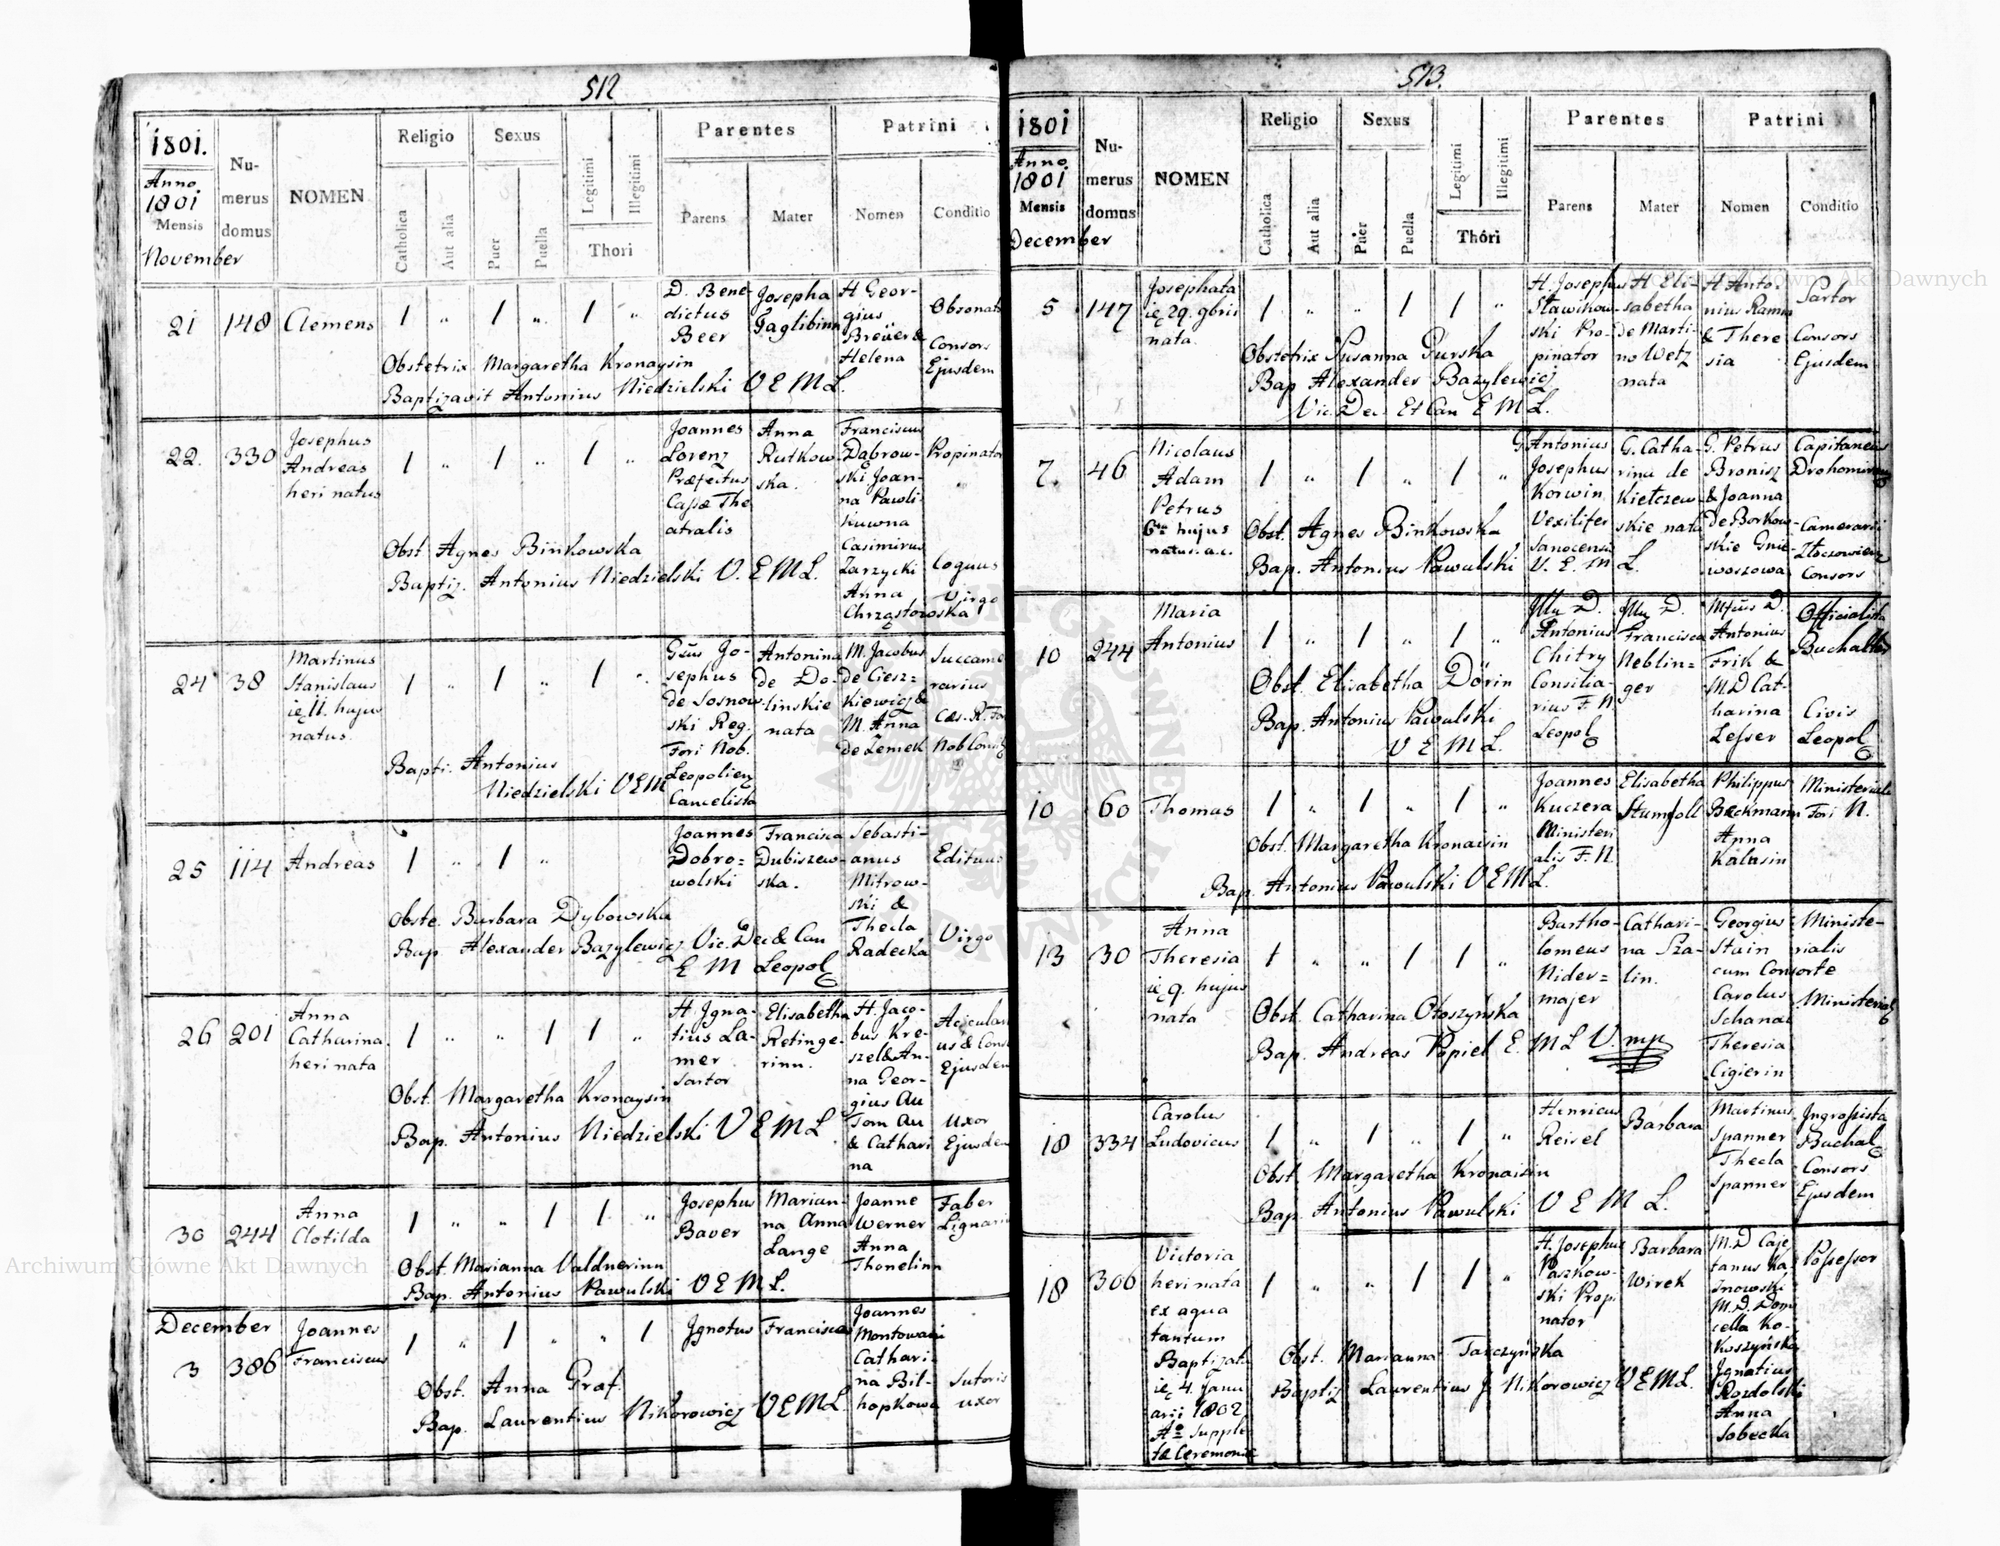 512
1801.
Anno
1801
Mensis
November
Numerus domus
NOMEN
Religio
Catholica
Aut alia
Sexus
Puer
Puella
Legitimi
Illegitimi
Thori
Parentes
Parens
Mater
Patrini
Nomen
Conditio
21
148
Clemens
1 „ 1 „ 1
D. Bene-
dictus
Beer
Josepha
Taglibinn
H Geor-
gius
Breüer &
Helena
Obsonat
Consors
Ejusdem
Obstetrix Margaretha Kronaysin
Baptizavit Antonius Niedzielski V E M L.
22.
330
Josephus
Andreas
heri natus
1 „ 1 „ 1 „
Joannes
Lorenz
Præfectus
Cassæ The
atralis
Anna
Rutkow-
ska.
Franciscus
Dąbrow-
ski Joan-
na Pawli
kuwna
Casimirus
Zarzycki
Anna
Chrząstowska
Propinator
„
Coquus
Virgo
Obst Agnes Bińkowska
Baptiz. Antonius Niedzielski V. E M L.
24
38
Martinus
Stanislaus
ię 11. hujus
natus.
1 „ 1 „ 1 „
Gsus Jo-
sephus
de Sosnow
ski Reg.
Fori Nob.
Leopolien
Cancelista
Antonina
de Do-
linskie
nata
M. Jacobus
de Ciesz=
kiewicz &
M. Anna
de Zemek
Succame
rarius
Cæs. R. Fo
Nob Consi
Bapti. Antonius
Niedzielski V E M
25
114
Andreas
1 „ 1 „
Joannes
Dobro=
wolski
Francisca
Dubiszew-
ska.
Sebasti-
anus
Mitrow-
ski &
Thecla
Radecka
Edituus
Virgo
Obste. Barbara Dybowska
Bap. Alexander Bazylewicz Vic. Dec & Can
E M Leopol
26
201
Anna
Catharina
heri nata
1 „ „ 1 1 „
H Igna-
tius La-
mer
Sartor
Elisabetha
Retinge-
rinn.
H. Jaco-
bus Kre-
szel & An-
na Geor-
gius Au
Tom Au
& Cathari
na
Acicular
us & Cons
Ejusdem
Uxor
Ejusdem
Obst. Margaretha Kronaysin
Bap. Antonius Niedzielski V E M L
30
244
Anna
Clotilda
1 „ „ 1 1 „
Josephus
Baver
Marian-
na Anna
Lange
Joanne
Werner
Anna
Thonelinn
Faber
Lignari
Obst. Marianna Valdnerinn
Bap. Antonius Pawulski V E M L.
December
3
386
Joannes
Franciscus
1 „ 1 „ „ 1
Ignotus
Francisca
Joannes
Montowani
Cathari
na Bil-
hopkowa
Sutoris
uxor
Obst. Anna Graf.
Bap. Laurentius Nikorowicz V E M L.
513.
1801
Anno
1801
Mensis
December
Numerus domus
NOMEN
Religio
Catholica
Aut alia
Sexus
Puer
Puella
Legitimi
Illegitimi
Thori
Parentes
Parens
Mater
Patrini
Nomen
Conditio
5
147
Josephata
ię 29. 9bris
nata.
1 „ „ 1 1 „
H. Josephus
Sławikow-
ski Pro-
pinator
H Eli-
sabetha
de Marti-
no Wetz
nata
H Anto-
nius Ramm
& There
sia
Sartor
Consors
Ejusdem
Obstetrix Susanna Gurska
Bap Alexander Bazylewicz
Vic. Dec. Et Can E M L.
7.
46
Nicolaus
Adam
Petrus
6ta hujus
natus. a.c.
1 „ 1 „ 1 „
G. Antonius
Josephus
Korwin
Vexilifer
Sanocensis
V. E. M L.
G. Catha-
rina de
Kiełczew
skie nata
G. Petrus
Bronisz
& Joanna
de Borkow-
skie Gnie-
woszowa
Capitaneus
Drohomir
Camerarii
Złoczowien
Consors
Obst. Agnes Binkowska
Bap. Antonius Pawulski
10
244
Maria
Antonius
1 „ 1 „ 1 „
Illu D.
Antonius
Chitry
Consilia-
rius F. N
Leopol
Illu D.
Francisca
Neblin=
ger
D.
Antonius
Frik &
M. D Cat-
harina
Lesser
Officialista
Buchalter
Civis
Leopol
Obst. Elisabetha Dörin
Bap. Antonius Pawulski
V E M L.
10
60
Thomas
1 „ 1 „ 1 „
Joannes
Kuczera
Ministeri
alis F. N.
Elisabetha
Stumfoll
Philippus
Beckmann
Anna
Kalusin
Ministerialis
Fori N.
Obst. Margaretha Kronaisin
Bap. Antonius Pawulski V E M L.
13
30
Anna
Theresia
ię 9. hujus
nata
1 „ „ 1 1 „
Bartho-
lomeus
Nider=
majer
Cathari-
na Sza-
lin.
Georgius
Stain
cum Consorte
Carolus
Schanda
Theresia
Cigierin
Ministe-
rialis
Ministerial
Obst. Catharina Otoszyńska
Bap. Andreas Popiel E. M L V. mp
18
334
Carolus
Ludovicus
1 „ 1 „ 1 „
Henricus
Reisel
Barbara
Martinus
Spanner
Thecla
Spanner
Ingrossista
Buchal
Consors
Ejusdem
Obst. Margaretha Kronaisin
Bap. Antonius Pawulski V E M L.
18
306
Victoria
heri nata
ex aqua
tantum
Baptizata
ię 4. Janu
arii 1802.
Supple
ta Ceremonia
1 „ „ 1 1 „
H. Josephus
Paszkow-
ski Prop.
nator
Barbara
Wirek
M. D Caje
tanus Ka
znowski
M. D. Dom
cella Ko-
koszyńska
Ignatius
Rozdolski
Anna
Sobecka
Possessor
Obst. Marianna Tarczyńska
Baptiz Laurentius J. Nikorowicz V E M L.
Archiwum Główne Akt Dawnych
Archiwum Główne Akt Dawnych